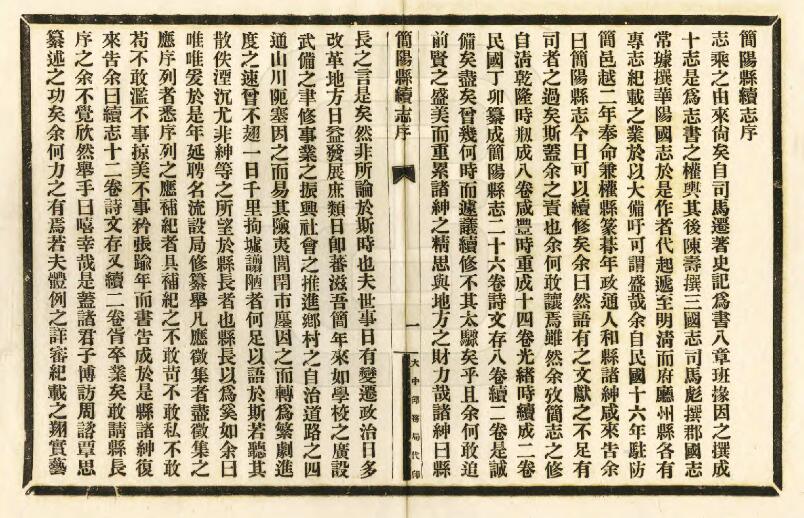 簡陽縣續志序
志乘之由來尙矣自司馬遷著史記爲書八章班掾因之撰成
十志是爲志書之權輿其後陳壽撰三國志司馬彪撰郡國志
常璩撰華陽國志於是作者代起遞至明淸而府廳州縣各有
專志紀載之業於以大備吁可謂盛哉余自民國十六年駐防
簡邑越二年奉命兼權縣篆朞年政通人和縣諸紳咸來告余
曰簡陽縣志今日可以續修矣余曰然語有之文獻之不足有
司者之過矣斯蓋余之責也余何敢讓焉雖然余攷簡志之修
自淸乾隆時刱成八卷咸豐時重成十四卷光緖時續成二卷
民國丁卯纂成簡陽縣志二十六卷詩文存八卷續二卷是誠
備矣盡矣曾幾何時而遽議續修不其太驟矣乎且余何敢追
前賢之盛美而重累諸紳之精思與地方之財力哉諸紳曰縣
簡陽縣續志序
一
大中印務局代印
長之言是矣然非所論於斯時也夫世事日有變遷政治日多
改革地方日益發展庶類日卽蕃滋吾簡年來如學校之廣設
武備之聿修事業之振興社會之推進鄉村之自治道路之四
通山川阨塞因之而易其險夷閭閈市廛因之而轉爲繁劇進
度之速曾不翅一日千里拘墟謭陋者何足以語於斯若聽其
散佚湮沉尤非紳等之所望於縣長者也縣長以爲奚如余曰
唯唯爰於是年延聘名流設局修纂舉凡應徵集者盡徵集之
應序列者悉序列之應補紀者具補紀之不敢苛不敢私不敢
苟不敢濫不事掠美不事矜張踰年而書告成於是縣諸紳復
來告余曰續志十二卷詩文存又續二卷皆卒業矣敢請縣長
序之余不覺欣然舉手曰嘻幸哉是蓋諸君子博訪周諮覃思
纂述之功矣余何力之有焉若夫體例之詳審紀載之翔實藝